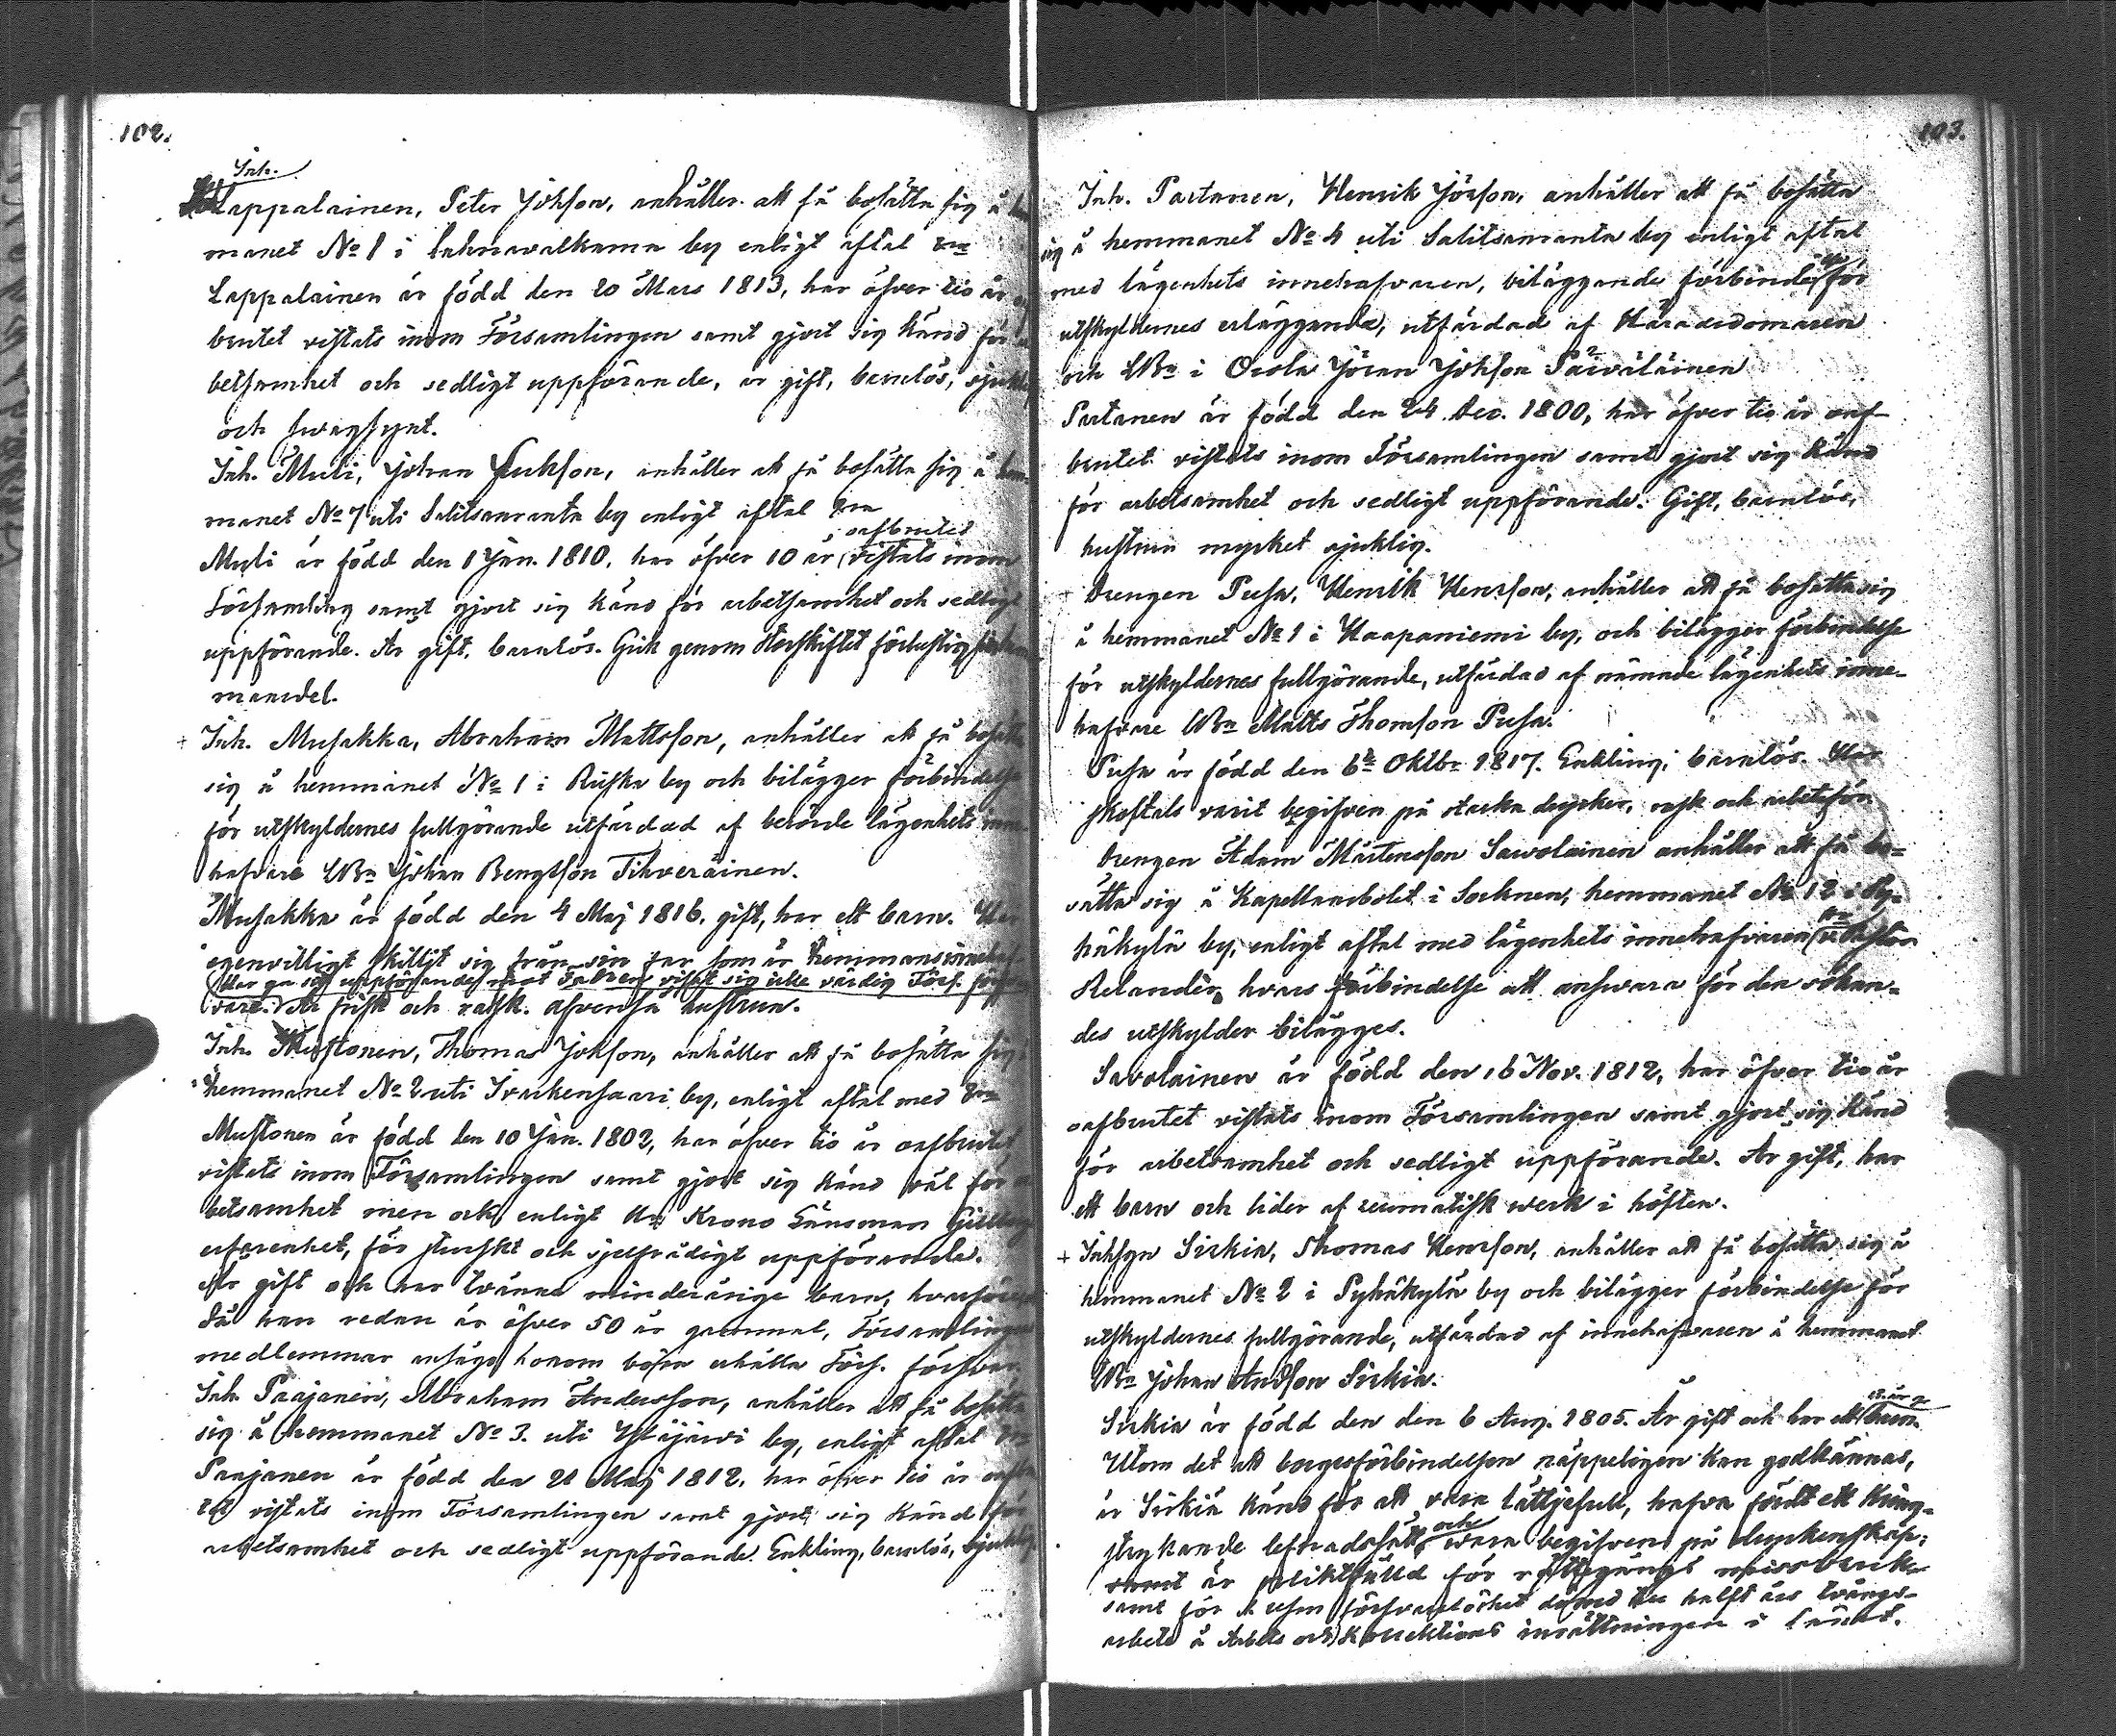 102.
Inh.
Lappalainen, Peter Johsson, anhåller att få bosätta sig å
manet No 1 i by enligt aftal
Lappalainen är född den 20 Mars 1813, har öfver tio år
brutet vistats inom Församlingen samt gjort sig känd för
betsamhet och sedligt uppförande, är gift, barnlös,
och swagsynt.
Inh. Muli, Johan anhåller att få bosätta sig å hem-
manet No 7 uti Salitsanranta by enligt aftal
oafbrutet
Muli är född den 1 Jan. 1810. har öfver 10 år vistats inom
Församling samt gjort sig känd för arbetsamhet och sedligt
uppförande. Är gift, barnlös. Gick genom Storskiftet förlustig
mansdel.
Inh. Musakka, Abraham Mattsson, anhåller att få bosätta
sig å hemmanet No 1 i Ruska by och bilägger förbindelse
för utskyldernes fullgörande utfärdad af berörde lägenhets
hafvare Bn Johan Bengtson Tihveräinen.
Musakka är född den 4 Maj 1816. gift, har ett barn. Har
egenvilligt skilljt sig från sin far som är
Har genom sitt uppförande mot Fadren visat sig icke värdig Förs.
vare. Är frisk och rask. äfvenså hustrun.
Inh. Mustonen, Thomas Johsson, anhåller att få bosätta sig
hemmanet No 2 uti by, enligt aftal med
Mustonen är född den 10 Jan. 1802, har öfver tio år oafbrutet
vistats inom Församlingen samt gjort sig känd väl för
betsamhet men ock enligt Hr Krono Länsman
erfarenhet, för sturskt och sjelfrådigt uppförande.
Är gift och har tvänne minderårige barn, hvarföre
då han redan är öfver 50 år gammal, Församlingens
medlemmar ansågo honom böra erhålla Förs. försvar
Inh. Paajanen, Abraham Andersson, anhåller att få bosätta
sig å hemmanet No 3. uti by, enligt aftal
Paajanen är född den 21 Maj 1812, har öfver tio år
tet vistats inom Församlingen samt gjort sig känd för
arbetsamhet och sedligt uppförande. Enkling, barnlös,
103.
Inh. Partanen, Henrik Jörson, anhåller att få bosätta
sig å hemmanet No 4 uti Salitsanranta by enligt aftal
med lägenhets innehafvaren, biläggande förbindelse för
utskyldernes erläggande, utfärdad af Häradsdomaren
och Bn i Orola Jöran Johsson Päiväläinen
Partanen är född den 24 Dec. 1800, har öfver tio år oaf-
brutet vistats inom Församlingen samt gjort sig känd
för arbetsamhet och sedligt uppförande. Gift, barnlös,
hustrun mycket sjuklig.
Drengen Pusa, Henrik Henrson, anhåller att få bosätta sig
å hemmanet No 1 i Haapaniemi by, och bilägger förbindelse
för utskyldernes fullgörande, utfärdad af nämnde lägenhets inne-
hafvare Bn Matts Thomson Pusa.
Pusa är född den 6 Oktbr 1817. Enkling, barnlös. Har
varit begifven på starka drycker, rask och arbetsför.
Drengen Adam Mårtensson Sawolainen anhåller att få bo-
sätta sig å Kapellansbolet i Socknen, hemmanet No 12 i Py-
häkylä by, enligt aftal med lägenhets innehafvaren
Relander, hvars förbindelse att answara för den sökan-
des utskylder bilägges.
Savolainen är född den 16 Nov. 1812, har öfver tio år
oafbrutet vistats inom Församlingen samt gjort sig känd
för arbetsamhet och sedligt uppförande. Är gift, har
ett barn och lider af reumatisk werk i höften.
Inhsyn Sirkiä, Thomas Henrson, anhåller att få bosätta sig å
hemmanet No 2 i Pyhäkylä by och bilägger förbindelse för
utskyldernes fullgörande, utfärdad af innehafvaren å hemmanet
Bn Johan Andson Sirkiä.
Sirkiä är född den den 6 Aug. 1805. Är gift och har ett barn.
Utom det att borgesförbindelsen näppeligen kan godkännas,
är Sirkiä känd för att vara lättjefull, hafva fördt ett kring-
strykande lefnadssätt, och wara begifven på dryckenskap;
samt är pliktfälld för rättegångs missbruk
samt för sitt försvarslöshet dömd till halft års tvångs-
arbete å Arbets och Korrektions inrättningen i